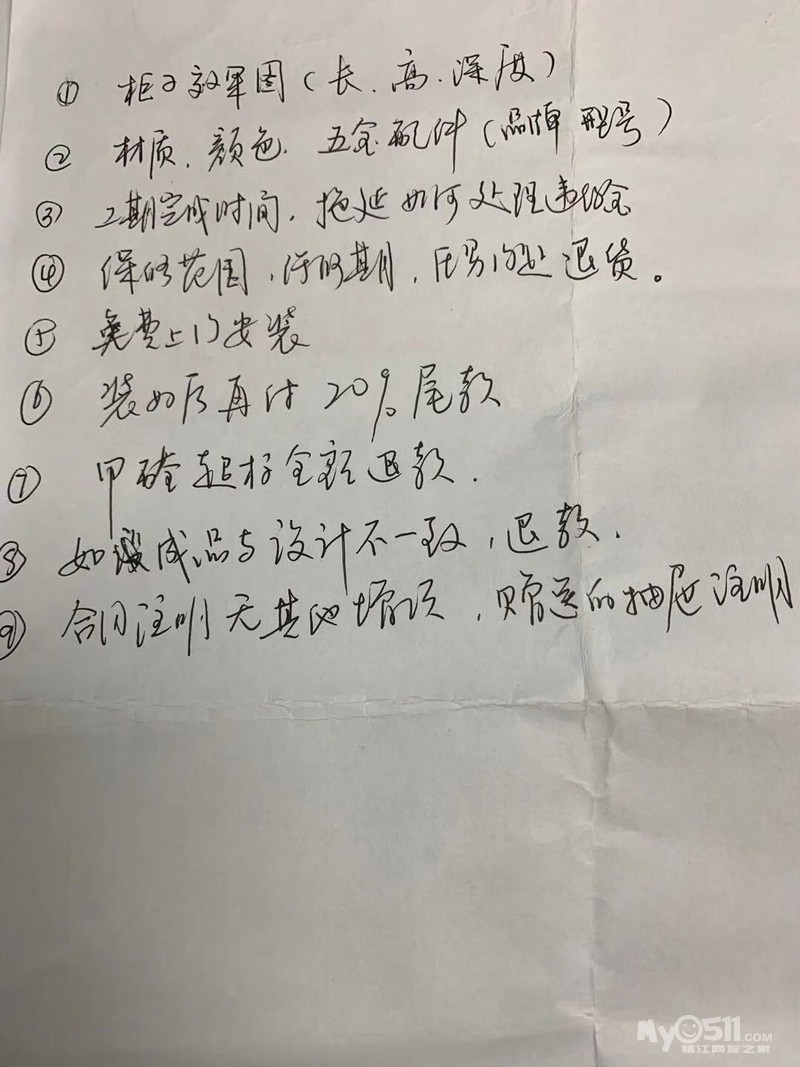 ① 柜子效果图(长、高、深度)
② 材质、颜色、五金配件(品牌 型号)
③ 工期完成时间,拖延如何处理违约金
④ 保修范围,保修期, 退货。
⑤ 免费上门安装
⑥ 装好后再付20%尾款
⑦ 甲醛超标全额退款.
⑧ 如 成品与设计不一致,退款.
⑨ 合同注明无其他增项,赠送的抽屉注明
My0511.COM
镇江网友之家